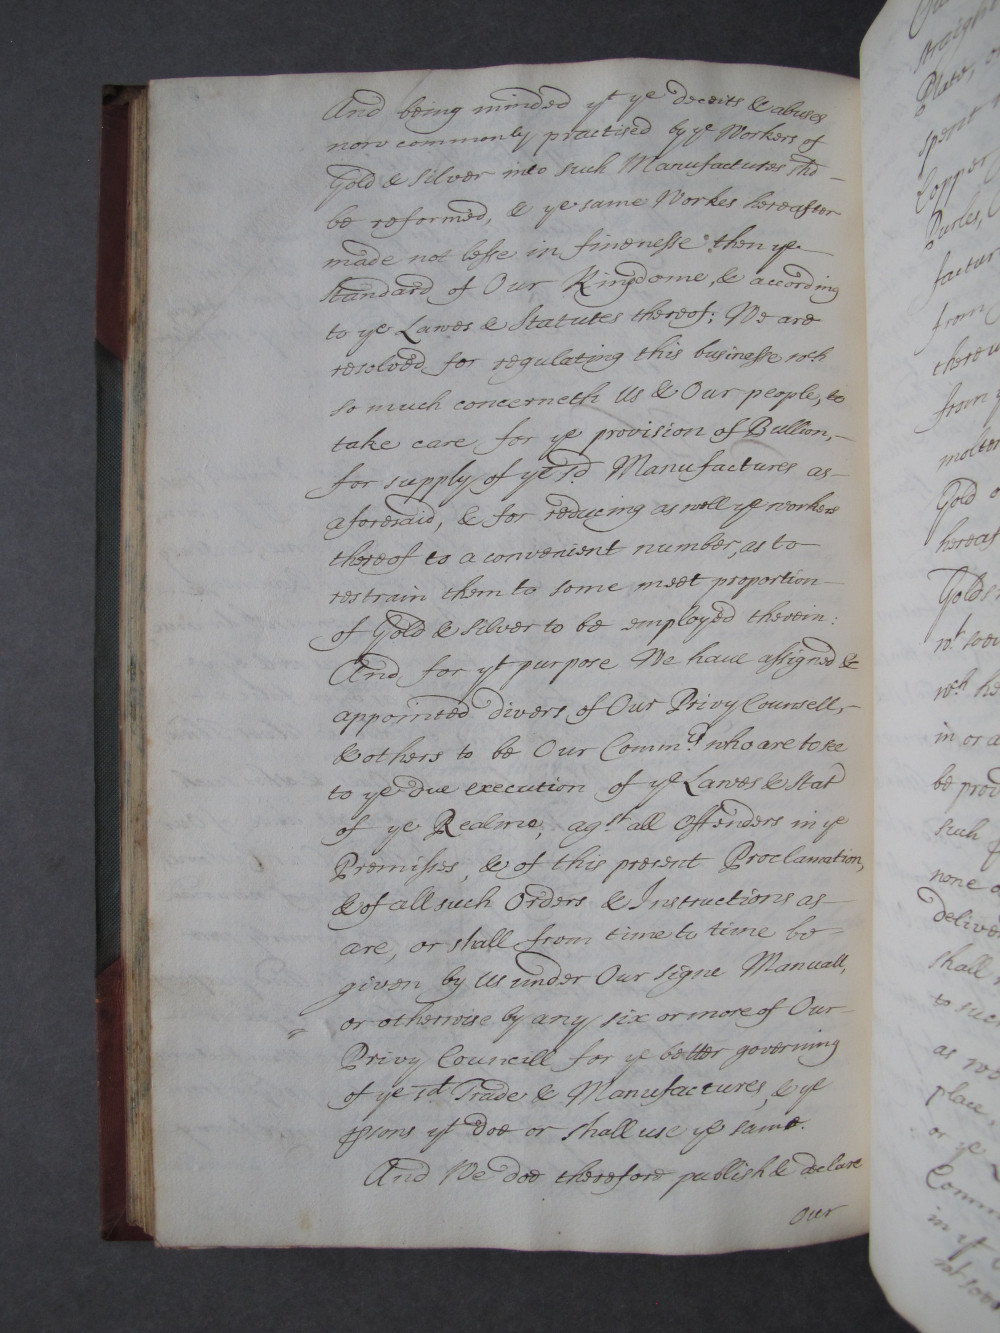 And being minded yt ye deceits & abuses
now commonly practised by ye Workers of
Gold & Silver into such Manufactures shd
be reformed, & ye same Workes hereafter
made not lesse in finenesse then ye
Standard of Our Kingdome, & according
to ye Lawes & Statutes thereof; We are
resolved for regulating this businesse wch
so much concerneth Us & Our people, to
take care for ye provision of Bullion,
for supply of ye sd Manufactures as
aforesaid, & for reducing as well ye workers
thereof to a convenient number, as to
restrain them to some meet proportion
of Gold & Silver to be employed therein:
And for yt purpose We have assigned &
appointed divers of Our Privy Counsell,
& others to be Our Commrs who are to see
to ye due execution of ye Lawes & Stat
of ye Realme, agst all Offenders in ye
Premisses, & of this present Proclamation,
& of all such Orders & Instructions as
are, or shall from time to time be
given by Us under Our Signe Manuall,
or otherwise by any six or more of Our
Privy Councill for ye better governing
of ye sd Trade & Manufactures, & ye
psons yt doe or shall use ye same.
And We doe therefore publish & declare
Our
straight
Plate, o
spent
Copper
Purles,
factur
from
there
from
molten
Gold o
hereaf
Golds
wt soe
wch he
in or a
be prov
such
none o
delive
shall
to suc
as we
place,
or ye
Comm
in yt